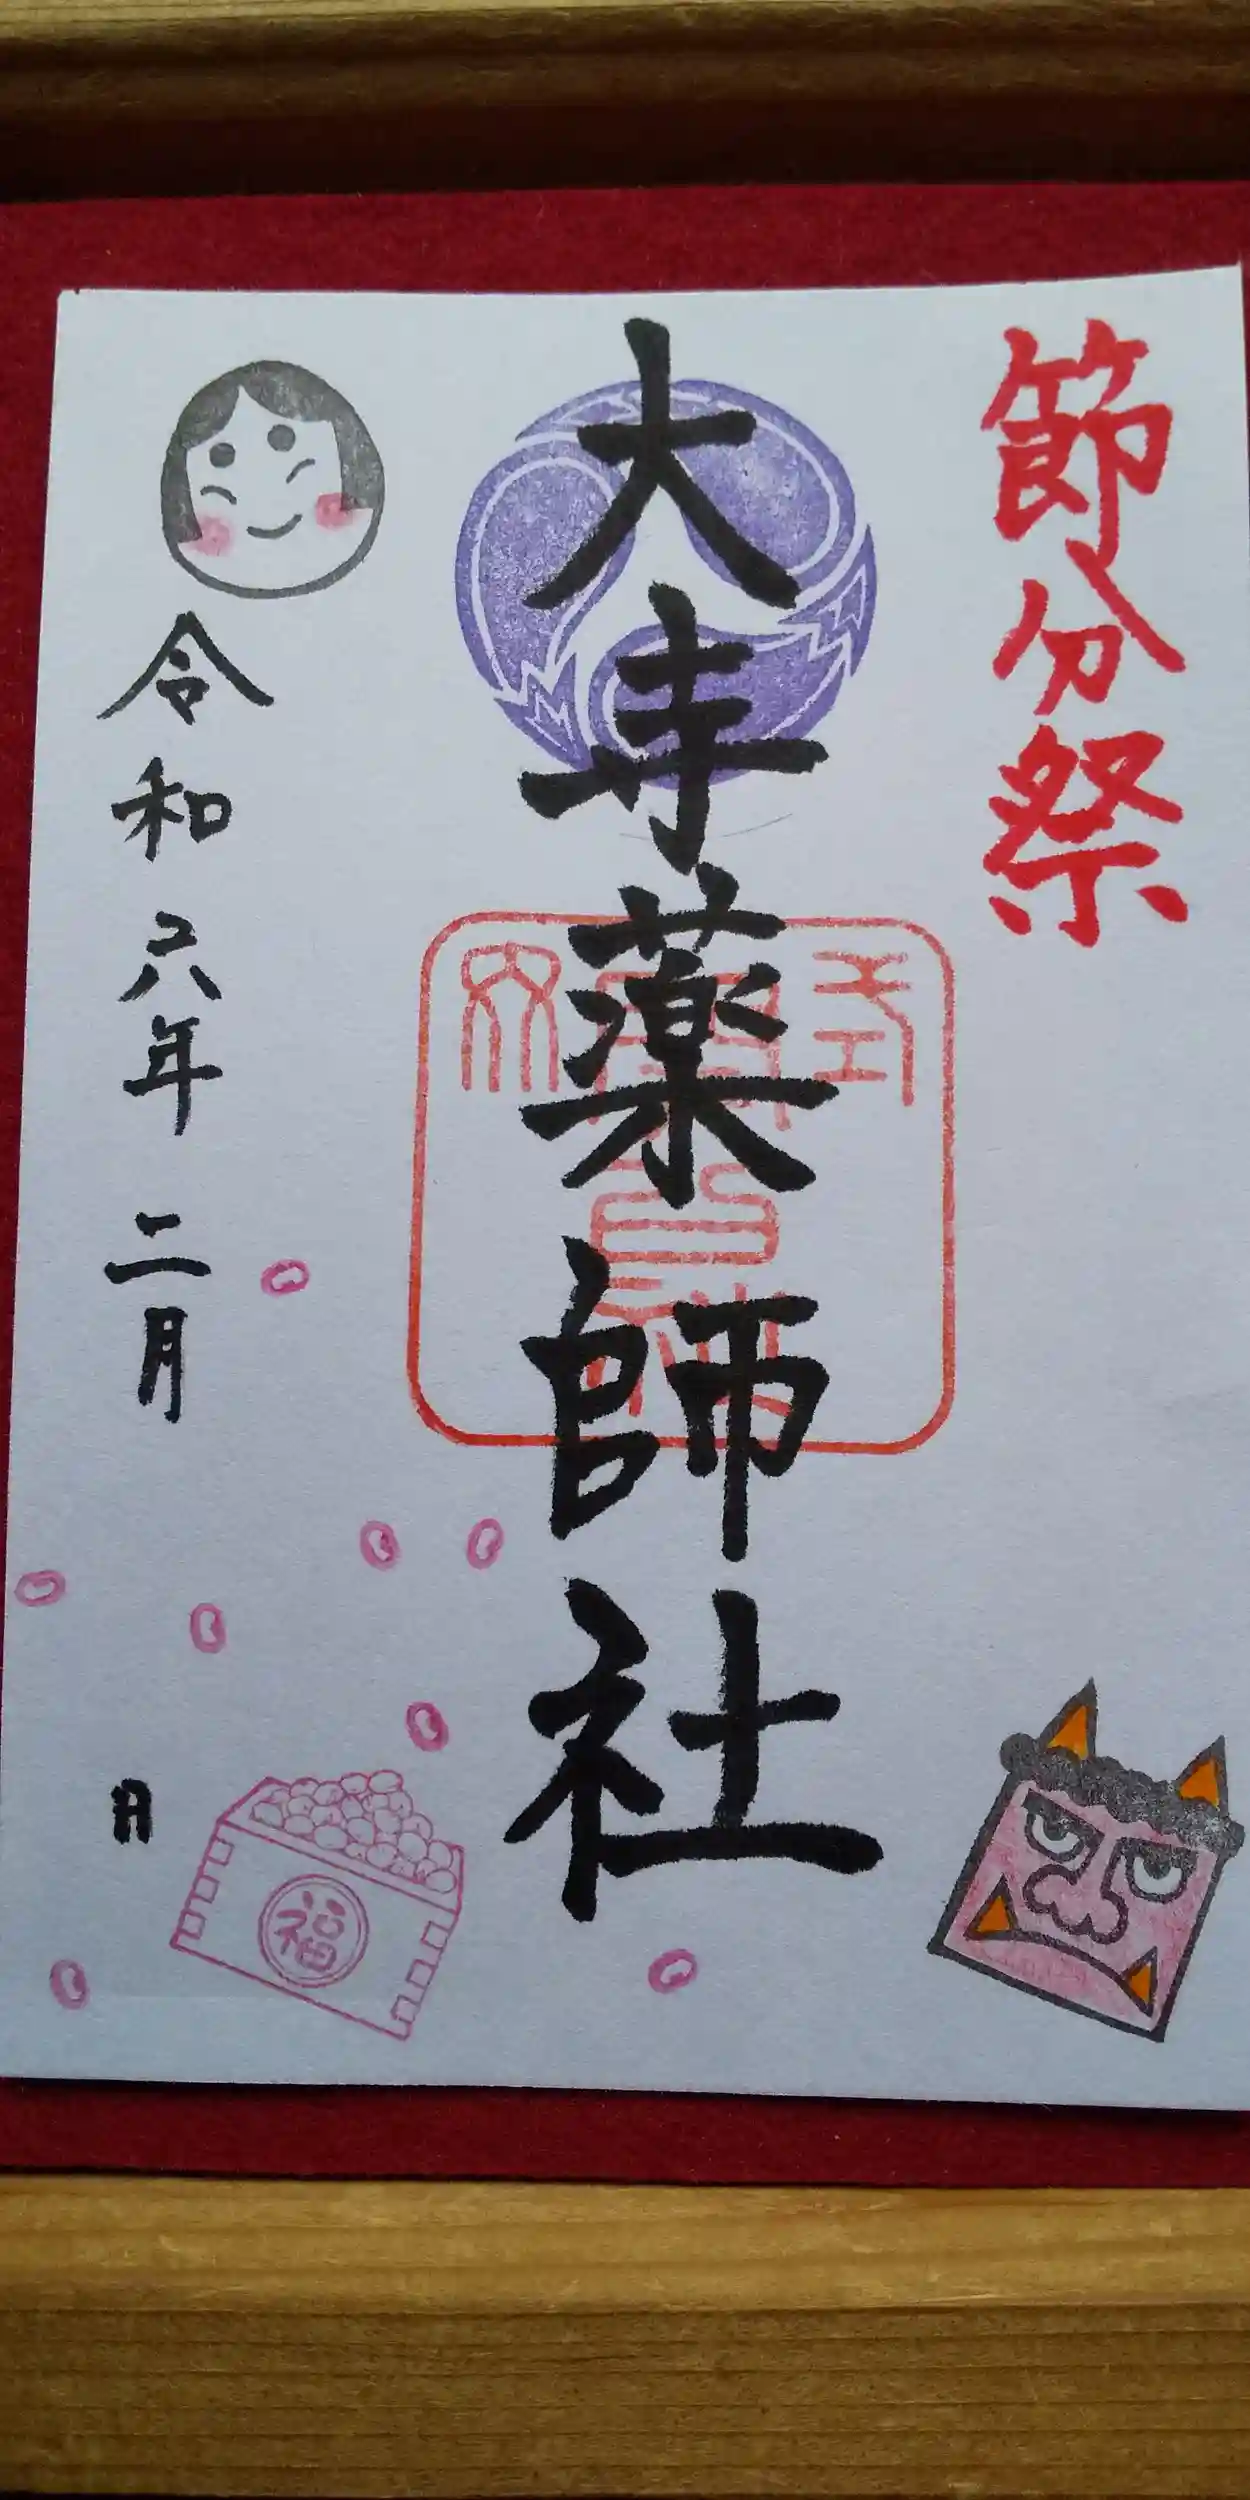 節分祭
大寺薬師社
令和六年二月
日
福